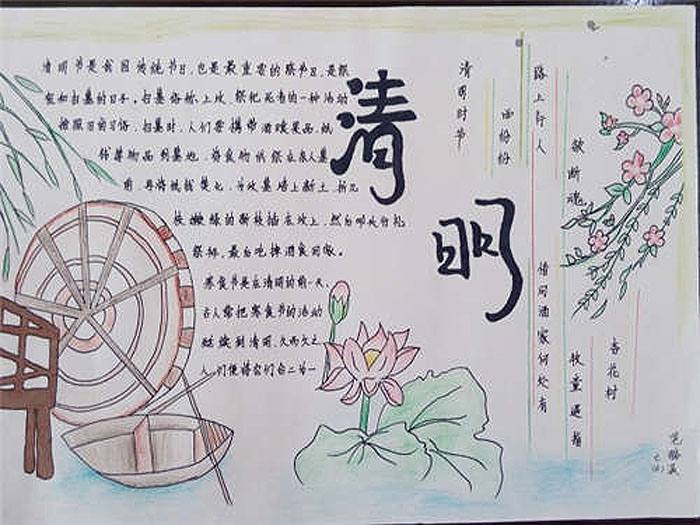 清明节是我国传统节日，也是最重要的祭节日，是祭
祖和扫墓的日子。扫墓俗称上坟，祭祀死者的一种活动
按照习俗，扫墓时，人们要携带酒馔果品，纸
钱等物品到墓地，将食物供祭在亲人墓
前，再将纸钱焚化，为坟墓培上新土，折几
枝嫩绿的新枝插在坟上，然后叩头行礼
祭拜，最后吃掉酒食回家。
寒食节是在清明的前一天，
古人常把寒食节的活动
延续到清明，久而久之，
人们便将它们合二为一
清明
清明时节
雨纷纷
路上行人
欲断魂
借问酒家何处有
牧童遥指
杏花村